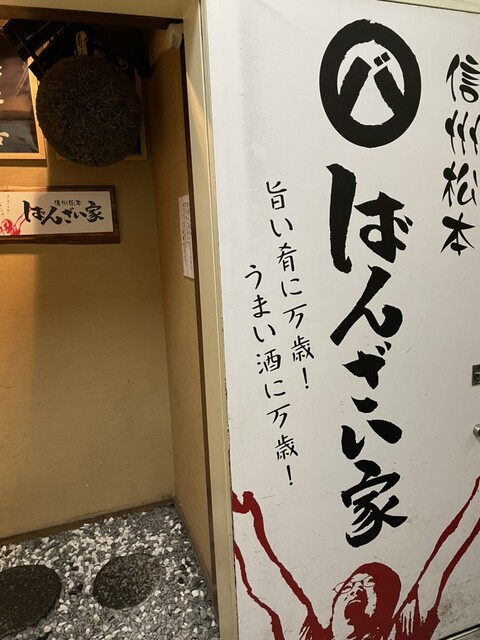 信州松本
バ
ばんざい家
旨い肴に万歳！
うまい酒に万歳！
信州松本
ばんざい家